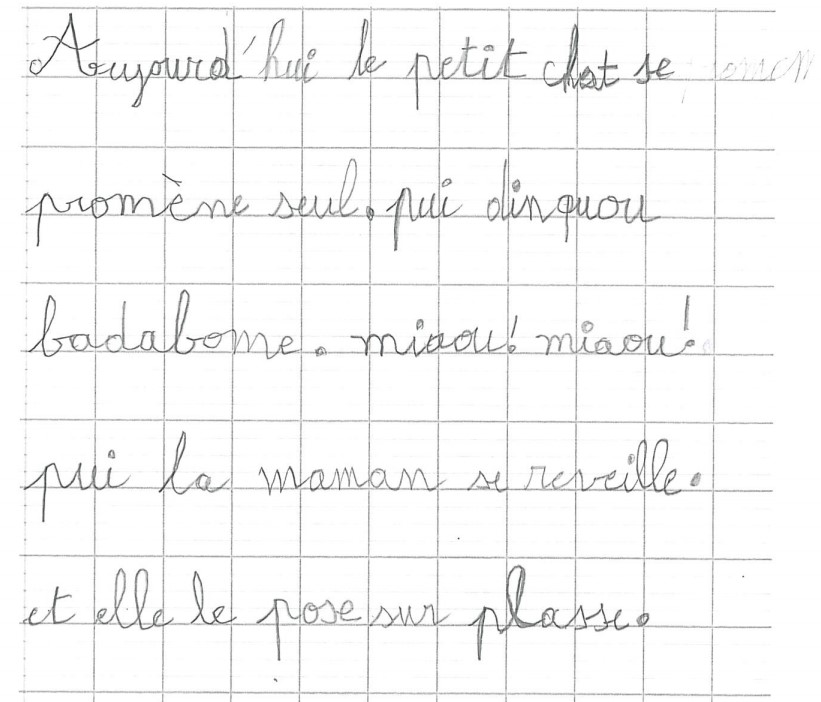 Aujourd'hui le petit chat se
promène seul. pui dinquou
badabome. miaou! miaou!
pui la maman se reveille.
et elle le pose sur plasse.